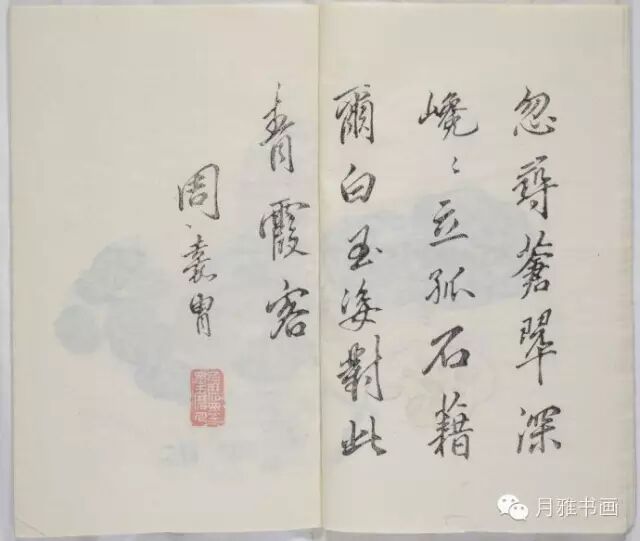 忽尋蒼翠深
巉〻立孤石藉
爾白玉姿對此
青霞客
周嘉胄
月雅书画